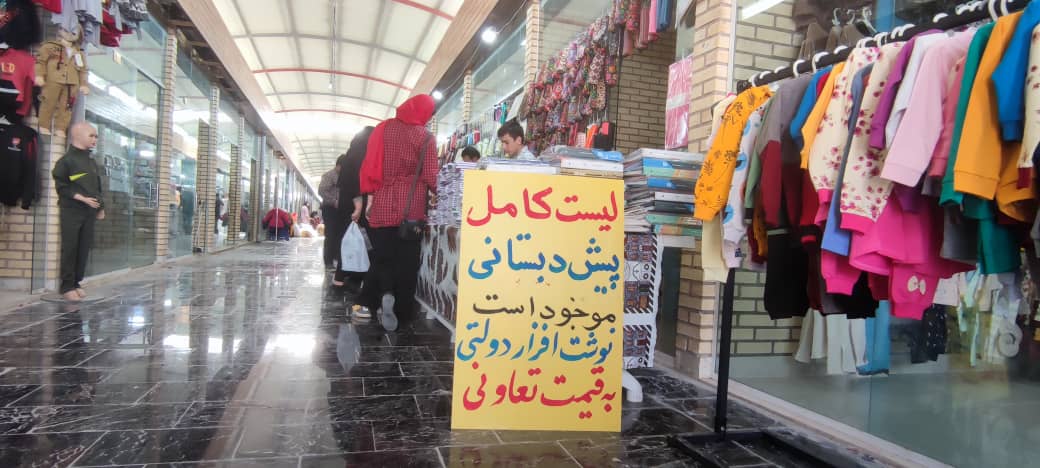 لیست کامل
پیش دبستانی
موجود است
نوشت افزار دولتی
به قیمت تعاونی